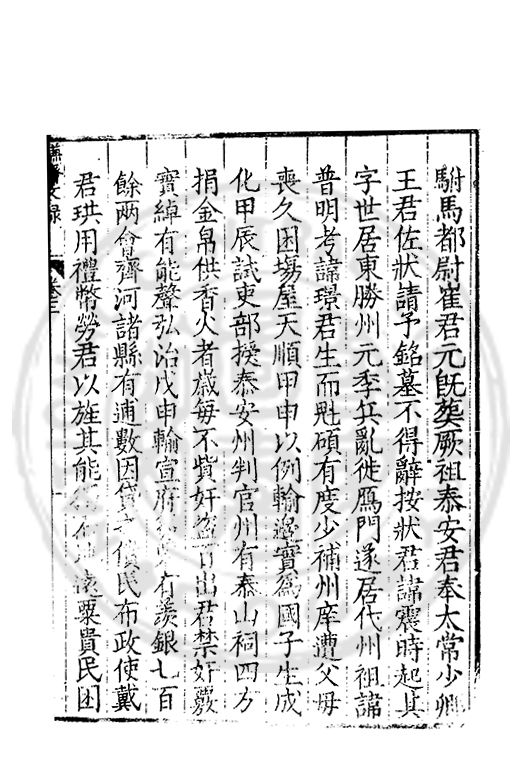 駙馬都尉崔君元旣葬厥祖泰安君奉太常少卿
王君佐狀請予銘墓不得辭按狀君諱震時起其
字世居東勝州元季兵亂徙鴈門遂居代州祖諱
普明考諱璟君生而魁碩有度少補州庠遭父母
喪久困場屋天順甲申以例輸邊實爲國子生成
化甲辰試吏部授泰安州判官州有泰山祠四方
捐金帛供香火者歲每不貲奸盜百出君禁奸覈
實綽有能聲弘治戊申輸宣府有羡銀七百
餘兩會齊河諸縣有逋數因貸償民布政使戴
君珙用禮幣勞君以旌其能遠粟貴民困
文錄 卷三